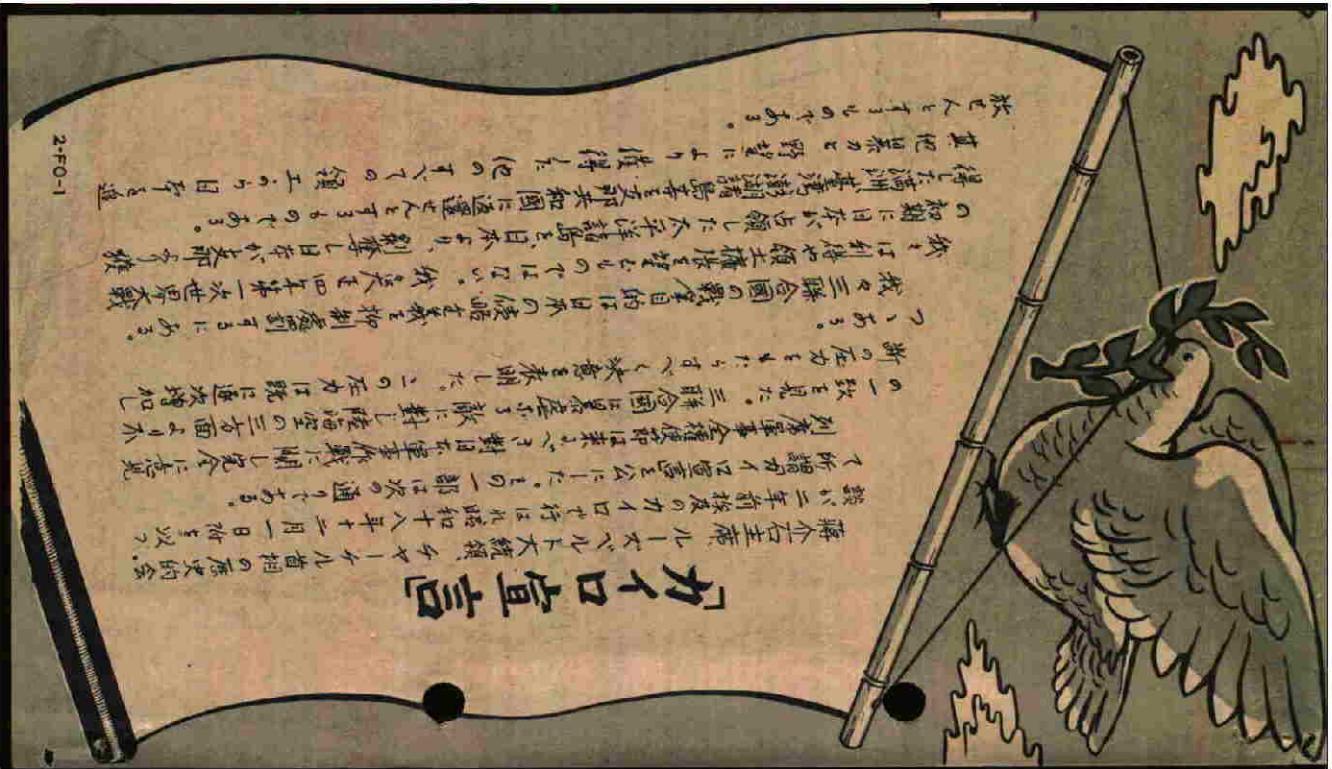 「カイロ宣言」
蒋介石主席、ルースベルト大統領、チャーチル首相の歴史的会
談が二年前埃及のカイロで行はれ昭和十八年十二月一日附を以つ
て所謂カイロ宣言を公にした。その一部は次の通りである。
列席軍事全権使節は来るべき對日本軍事作戦に関し完全に意見
の一致を見た。三聯合國は暴虐なる敵に對し陸海空の三方面より不
断の圧力をもたらすべく決意を表明した。この圧力は既に逐次増加し
つゝある。
我々三聯合國の戰争目的は日本の侵略主義を抑制處罰するにある。
我々は利得や領土擴張を望むものではない。我々は大正四年第一次世界大戰
の初期に日本が占領した太平洋諸島を日本より剥奪し日本が支那より獲
得した満洲、臺灣、澎湖諸島等を支那共和國に返還せんとするものである。
其他暴力と野望により獲得した他のすべての領土から日本を追
放せんとするものである。
2-FO-1